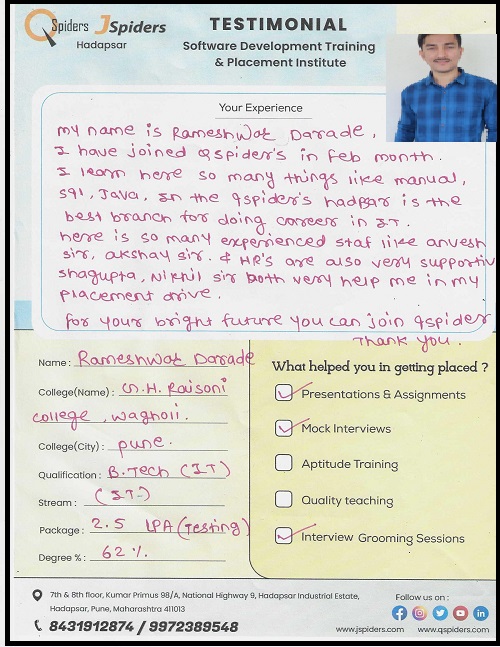 QSpiders JSpiders
Hadapsar
TESTIMONIAL
Software Development Training
& Placement Institute
Your Experience
my name is Rameshwar Darade,
I have joined Qspider's in feb month.
I learn here so many things like manual,
sql, Java, In the qspider's hadpsar is the
best branch for doing career in IT.
here is so many experienced staf like anvesh
sir, akshay sir. & HR's are also very supportiv
shagupta, Nikhil sir both very help me in my
placement drive.
for your bright future you can join qspider
Thank you.
Name: Rameshwar Darade
College(Name): G.H. Raisoni
college, wagholi.
College(City): pune.
Qualification: B.Tech (IT)
Stream: (IT)
Package: 2.5 LPA (Testing)
Degree %: 62 %.
What helped you in getting placed ?
Presentations & Assignments
Mock Interviews
Aptitude Training
Quality teaching
Interview Grooming Sessions
7th & 8th floor, Kumar Primus 98/A, National Highway 9, Hadapsar Industrial Estate,
Hadapsar, Pune, Maharashtra 411013
8431912874 / 9972389548
Follow us on :
www.jspiders.com www.qspiders.com